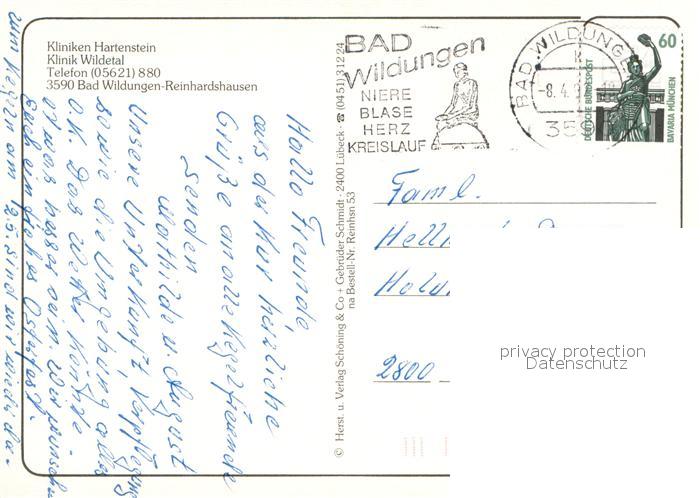 Kliniken Hartenstein
Klinik Wildetal
Telefon (05621) 880
3590 Bad Wildungen-Reinhardshausen
Hallo Freunde
aus der Kur herzliche
Grüße an alle Kegelfreunde
senden
Mathilde u. August
Unsere Unterkunft Verpflegung
sowie die Umgebung alles
O.K. Das Wetter könnte
etwas besser sein. Wir wünschen
Euch ein frohes Osterfest.
zum Kegeln am 25. sind wir wieder da.
© Herst. u. Verlag Schöning & Co + Gebrüder Schmidt · 2400 Lübeck · ☎ (0451) 31224
na Bestell-Nr. Reinhsn 53
BAD
Wildungen
NIERE
BLASE
HERZ
KREISLAUF
BAD WILDUNGE
-8.4.
359
60
DEUTSCHE BUNDESPOST
BAVARIA MÜNCHEN
Faml.
2800
privacy protection
Datenschutz